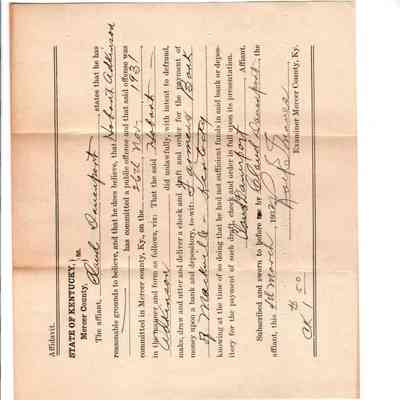 Affidavit.
STATE OF KENTUCKY, } sct.
Mercer County,
The affiant, Claud Davenport states that he has
reasonable grounds to believe, and that he does believe, that Hobart Adkinson
has committed a public offense and that said offense was
committed in Mercer county, Ky., on the 26th Nov. 1931
in the manner and form as follows, viz: That the said Hobart
Adkinson did unlawfully, with intent to defraud,
make, draw and utter and deliver a check and draft and order for the payment of
money upon a bank and depository, to-wit: Farmers Bank
of Mackville - Kentucky
knowing at the time of so doing that he had not sufficient funds in said bank or depos-
itory for the payment of such draft, check and order in full upon its presentation.
Claud Davenport Affiant.
Subscribed and sworn to before me by Claud Davenport, the
affiant, this March, 1932
Examiner Mercer County, Ky.
$ 1.50